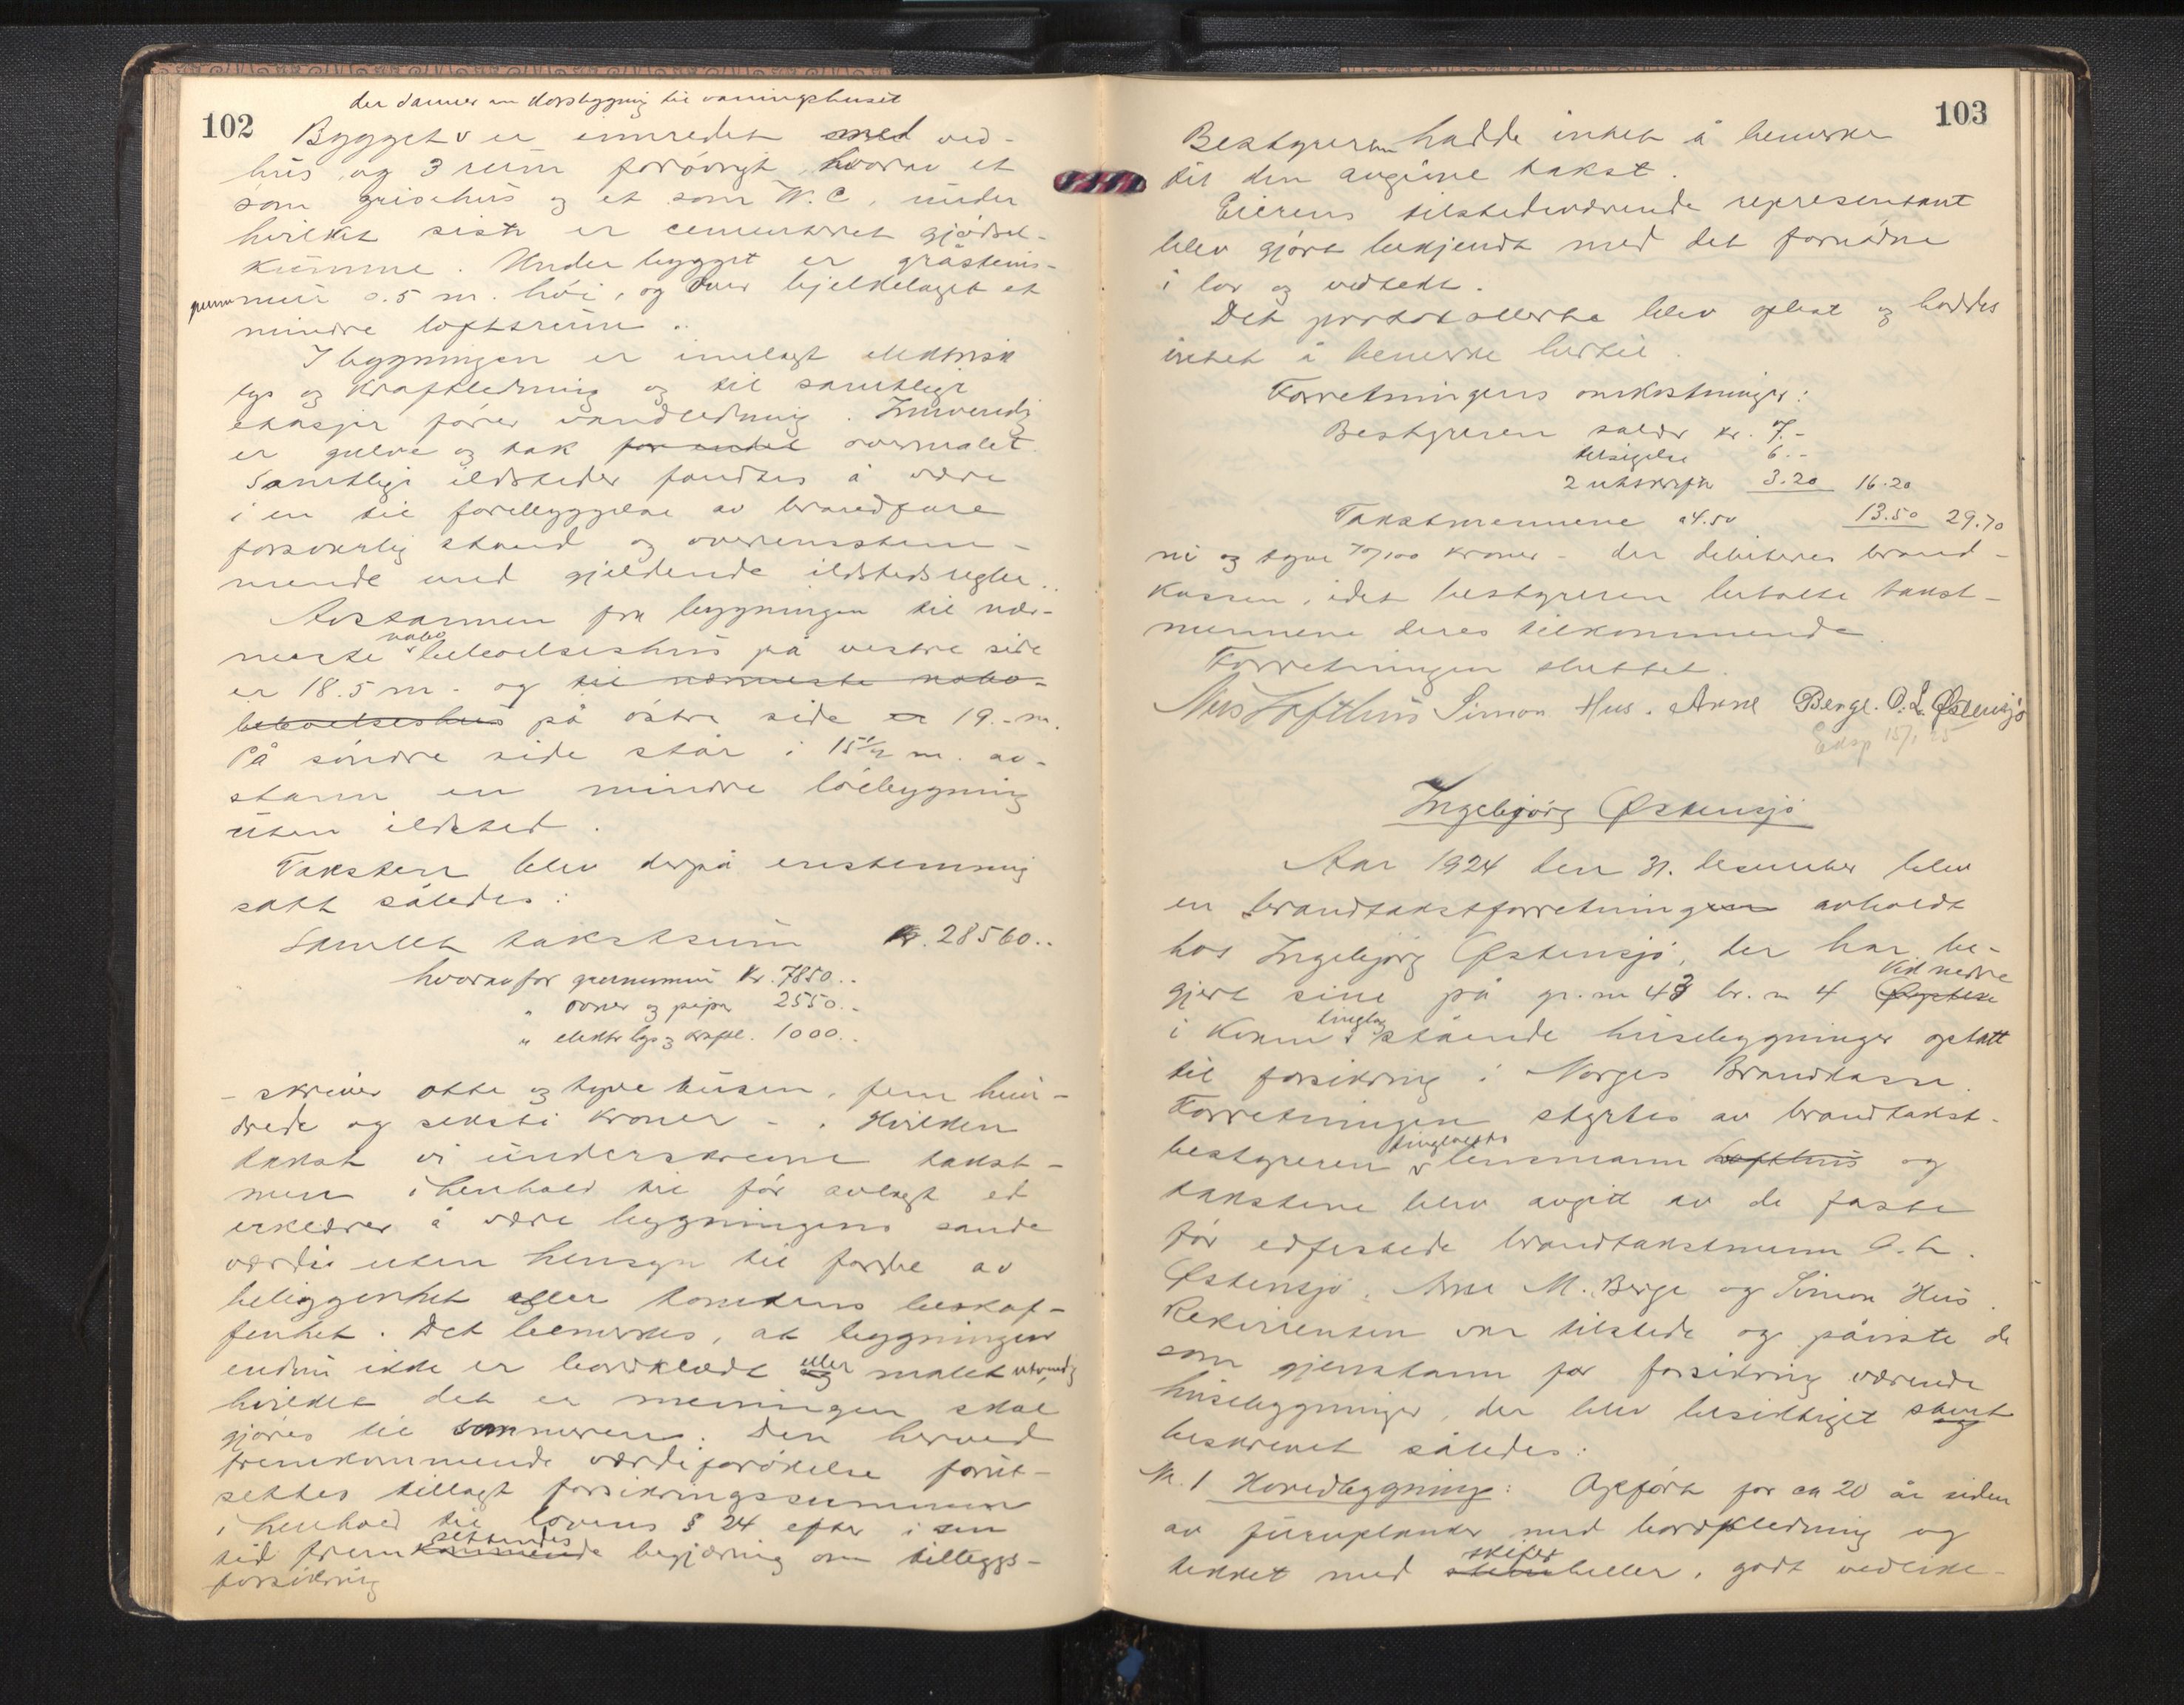 102
der danner en Korsbygning til vaaningshuset
Bygget v er innredet med ved-
hus, og 3 rum forøvrigt, hvorav et
som grisehus og et som W.C, under
hvilket siste er cementeret gjødsel-
kumme. Under bygget er gråsteins-
grunnmur o.5 m. høi, og over bjelkelaget et
mindre loftsrum.
I bygningen er innlagt elektrisk
lys og kraftledning og til samtlige
etasjer fører vandledning. Innvendig
er gulve og tak for endel overmalet.
Samtlige ildsteder fandtes å være
i en til forebyggelse av brandfare
forsvarlig stand og overensstem-
mende med gjeldende ildstedsregler.
Avstannen fra bygningen til nær-
meste v nabo beboelseshus på vestre side
er 18.5 m. og til nærmeste nabo-
beboelseshus på østre side er 19.- m.
På søndre side står i 15 1/2 m. av-
stann en mindre løebygning
uten ildsted.
Taksten blev derpå enstemmig
satt således:
Samlet takstsum Kr. 28560..
hvorav for grunnmur Kr. 7850..
" ovner og piper 2550..
" elektr lys og kraftl. 1000..
- skriver otte og tyve tusen, fem hun-
drede og seksti kroner - . Hvilken
takst vi underskrevne takst-
menn i henhold til før avlagt ed
erklærer å være bygningens sande
værdi uten hensyn til fordel av
beliggenhet eller tomtens beskaf-
fenhet. Det bemerkes, at bygningen
endnu ikke er bordklædt og eller malet utvendig
hvilket det er meningen skal
gjøres til sommeren. Den herved
fremkommende værdiforøkelse forut-
settes tillagt forsikringssummen
i henhold til lovens § 24 efter i sin
tid frem kommende settendes begjæring om tilleggs-
forsikring
103
Bestyreren hadde intet å bemerke
til den avgivne takst.
Eierens tilstedeværende representant
blev gjort bekjendt med det fornødne
i lov og vedtekt.
Det protokollerte blev oplest og haddes
intet å bemerke hertil.
Forretningens omkostninger:
Bestyreren salær kr. 7.-
tilsigelse 6.-
2 utskrifter 3.20 16.20
Takstmennene a 4.50 13.50 29.70
ni og tyve 70/100 kroner - der debiteres brand-
kassen, idet bestyreren betalte takst-
mennene deres tilkommende.
Forretningen sluttet.
Nils Lofthus Simon Hus. Arne Berge. O. L. Østensjø
Eksp 15/1 25
Ingebjørg Østensjø
Aar 1924 den 31. desember blev
en brandtakstforretningen avholdt
hos Ingebjørg Østensjø, der har be-
gjert sine på gr. nr 43 br. nr 4 Øystese Vik nedre
i Kvam v tinglag stående husebygninger optatt
til forsikring i Norges Brandkasse.
Forretningen styrtes av brandtakst-
bestyreren v tinglagets lensmann Lofthus og
takstene blev avgitt av de faste
før edfestede brandtakstmenn O. L.
Østensjø, Arne M. Berge og Simon Hus.
Rekvirenten var tilstede og påviste de
som gjenstann for forsikring værende
husebygninger, der blev besiktiget samt og
beskrevet således:
Nr. 1 Hovedbygning: Opført for ca 20 år siden
av furuplanker med bordkledning og
tekket med stein skifer heller, godt vedlike-